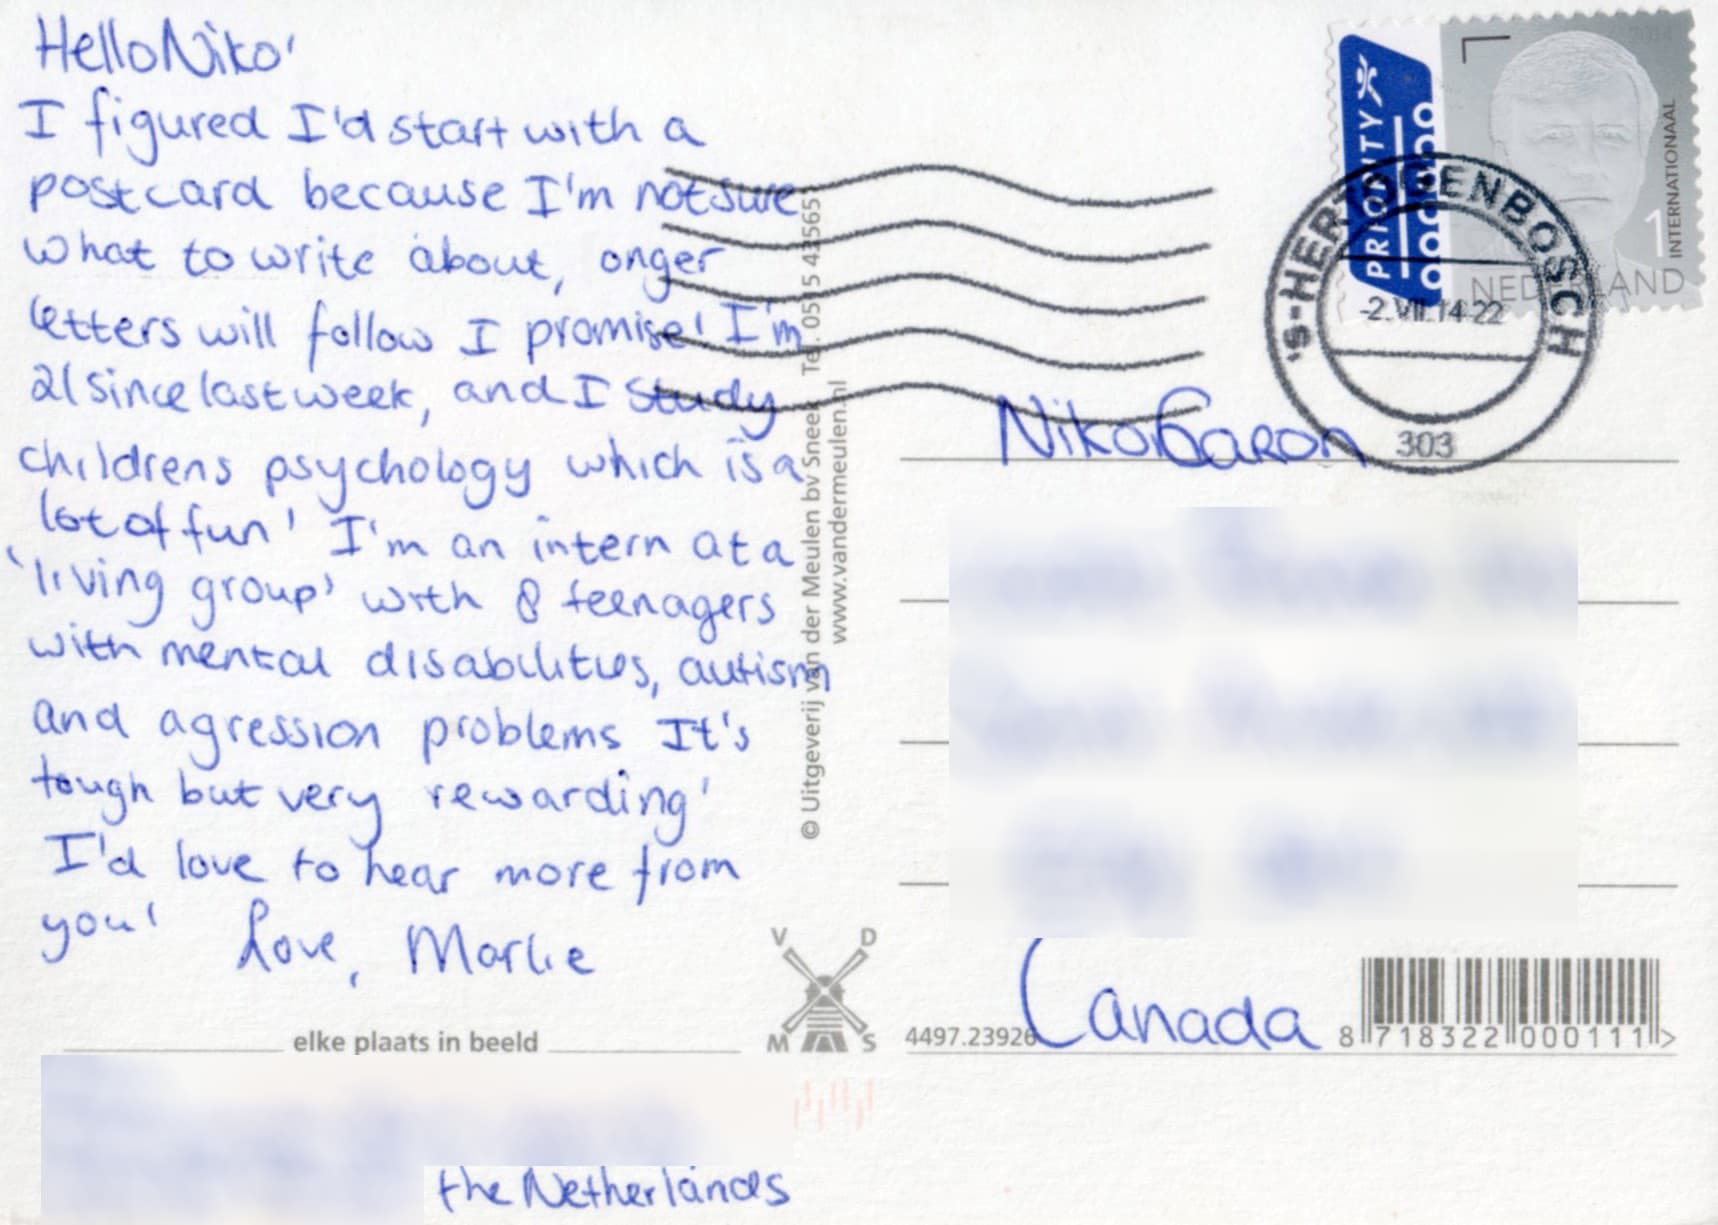 Hello Niko!
I figured I'd start with a
postcard because I'm not sure
what to write about, onger
letters will follow I promise! I'm
21 since last week, and I study
childrens psychology which is a
lot of fun! I'm an intern at a
'living group' with 8 teenagers
with mental disabilities, autism
and agression problems It's
tough but very rewarding!
I'd love to hear more from
you!
Love, Marlie
elke plaats in beeld
the Netherlands
© Uitgeverij van der Meulen bv Sneek Tel. 0515 42565
www.vandermeulen.nl
V D
M S
PRIORITY
2014
1 INTERNATIONAAL
NEDERLAND
's-HERTOGENBOSCH
-2.VII.14-22
303
Niko Caron
Canada
4497.23926
8 718322 000111 >